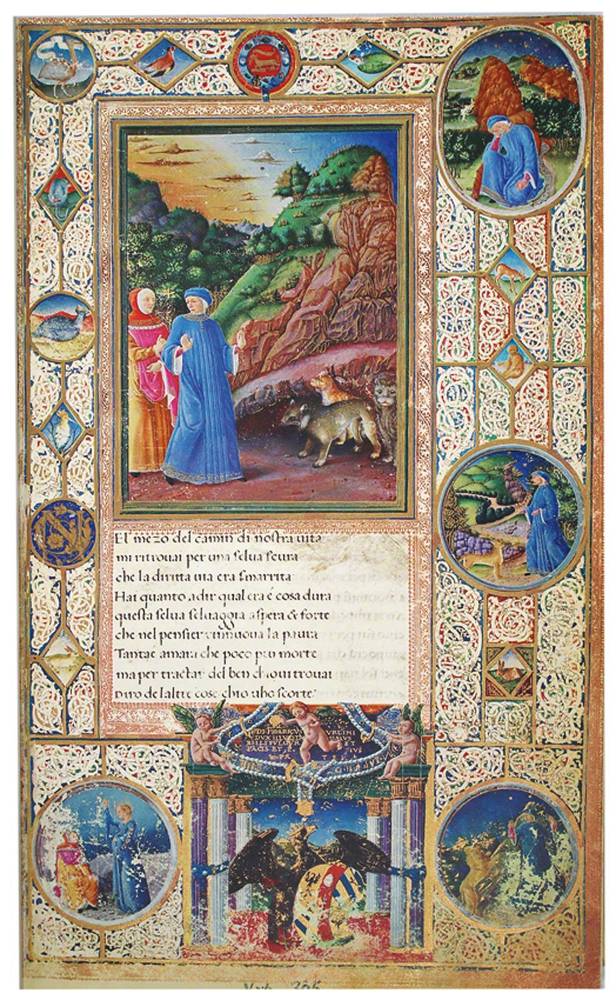 El mezo del camin di nostra uita
mi ritrouai per una selua scura
che la diritta uia era smarrita
Hai quanto a dir qual era é cosa dura
questa selua seluaggia aspera & forte
che nel pensier rinnuoua la paura
Tantae amara che poco piu morte
ma per tractar del ben chio ui trouai
diro de laltre cose chio uho scorte